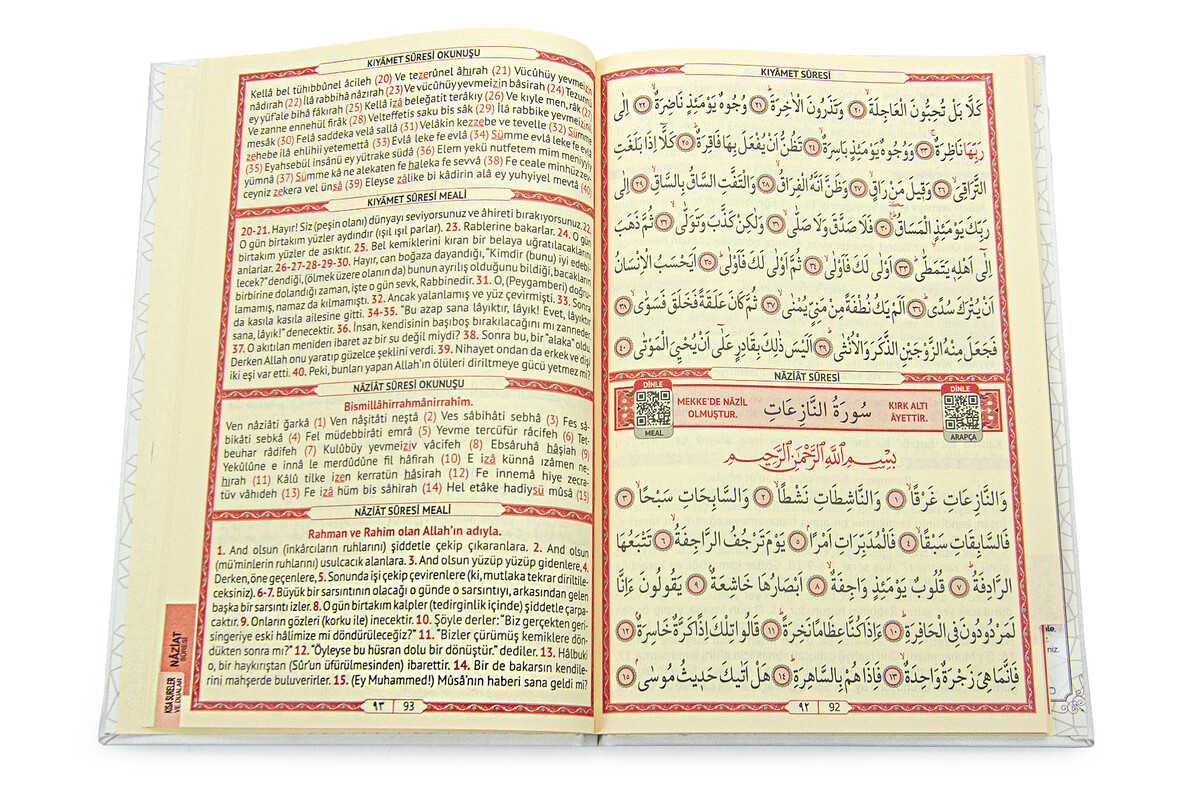 KIYÂMET SÛRESİ
كَلَّا بَلْ تُحِبُّونَ الْعَاجِلَةَ ﴿٢٠﴾ وَتَذَرُونَ الْاٰخِرَةَ ﴿٢١﴾ وُجُوهٌ يَوْمَئِذٍ نَاضِرَةٌ ﴿٢٢﴾ اِلٰى
رَبِّهَا نَاظِرَةٌ ﴿٢٣﴾ وَوُجُوهٌ يَوْمَئِذٍ بَاسِرَةٌ ﴿٢٤﴾ تَظُنُّ اَنْ يُفْعَلَ بِهَا فَاقِرَةٌ ﴿٢٥﴾ كَلَّٓا اِذَا بَلَغَتِ
التَّرَاقِيَ ﴿٢٦﴾ وَقِيلَ مَنْ رَاقٍ ﴿٢٧﴾ وَظَنَّ اَنَّهُ الْفِرَاقُ ﴿٢٨﴾ وَالْتَفَّتِ السَّاقُ بِالسَّاقِ ﴿٢٩﴾ اِلٰى
رَبِّكَ يَوْمَئِذٍ الْمَسَاقُ ﴿٣٠﴾ فَلَا صَدَّقَ وَلَا صَلّٰى ﴿٣١﴾ وَلٰكِنْ كَذَّبَ وَتَوَلّٰى ﴿٣٢﴾ ثُمَّ ذَهَبَ
اِلٰٓى اَهْلِهِ يَتَمَطّٰى ﴿٣٣﴾ اَوْلٰى لَكَ فَاَوْلٰى ﴿٣٤﴾ ثُمَّ اَوْلٰى لَكَ فَاَوْلٰى ﴿٣٥﴾ اَيَحْسَبُ الْاِنْسَانُ
اَنْ يُتْرَكَ سُدًى ﴿٣٦﴾ اَلَمْ يَكُ نُطْفَةً مِنْ مَنِيٍّ يُمْنٰى ﴿٣٧﴾ ثُمَّ كَانَ عَلَقَةً فَخَلَقَ فَسَوّٰى ﴿٣٨﴾
فَجَعَلَ مِنْهُ الزَّوْجَيْنِ الذَّكَرَ وَالْاُنْثٰى ﴿٣٩﴾ اَلَيْسَ ذٰلِكَ بِقَادِرٍ عَلٰٓى اَنْ يُحْيِيَ الْمَوْتٰى ﴿٤٠﴾
NÂZİÂT SÛRESİ
DİNLE
MEAL
MEKKE'DE NÂZİL
OLMUŞTUR.
سُورَةُ النَّازِعَاتِ
KIRK ALTI
ÂYETTİR.
DİNLE
ARAPÇA
بِسْمِ اللّٰهِ الرَّحْمٰنِ الرَّحِيمِ
وَالنَّازِعَاتِ غَرْقًا ﴿١﴾ وَالنَّاشِطَاتِ نَشْطًا ﴿٢﴾ وَالسَّابِحَاتِ سَبْحًا ﴿٣﴾
فَالسَّابِقَاتِ سَبْقًا ﴿٤﴾ فَالْمُدَبِّرَاتِ اَمْرًا ﴿٥﴾ يَوْمَ تَرْجُفُ الرَّاجِفَةُ ﴿٦﴾ تَتْبَعُهَا
الرَّادِفَةُ ﴿٧﴾ قُلُوبٌ يَوْمَئِذٍ وَاجِفَةٌ ﴿٨﴾ اَبْصَارُهَا خَاشِعَةٌ ﴿٩﴾ يَقُولُونَ ءَاِنَّا
لَمَرْدُودُونَ فِي الْحَافِرَةِ ﴿١٠﴾ ءَاِذَا كُنَّا عِظَامًا نَخِرَةً ﴿١١﴾ قَالُوا تِلْكَ اِذًا كَرَّةٌ خَاسِرَةٌ ﴿١٢﴾
فَاِنَّمَا هِيَ زَجْرَةٌ وَاحِدَةٌ ﴿١٣﴾ فَاِذَا هُمْ بِالسَّاهِرَةِ ﴿١٤﴾ هَلْ اَتٰيكَ حَدِيثُ مُوسٰى ﴿١٥﴾
٩٢ 92
KIYÂMET SÛRESİ OKUNUŞU
Kellâ bel tühıbbunel âcileh (20) Ve tezerûnel âhırah (21) Vücûhüy yevmeizin
nâdırah (22) İlâ rabbihâ nâzırah (23) Ve vücûhüy yevmeizin bâsirah (24) Tezunnü
ey yüf'ale bihâ fâkırah (25) Kellâ izâ beleğatit terâkıy (26) Ve kıyle men, râk (27)
Ve zanne ennehül firâk (28) Velteffetis saku bis sâk (29) İlâ rabbike yevmeizinil
mesâk (30) Felâ saddeka velâ sallâ (31) Velâkin kezzebe ve tevelle (32) Sümme
zehebe ilâ ehlihîi yetemettâ (33) Evlâ leke fe evlâ (34) Sümme evlâ leke fe evlâ
(35) Eyahsebül insânü ey yütrake südâ (36) Elem yekü nutfetem mim meniyyiy
yümnâ (37) Sümme kâ ne alekaten fe haleka fe sevvâ (38) Fe ceale minhüz zev-
ceyniz zekera vel ünsâ (39) Eleyse zâlike bi kâdirin alâ ey yuhyiyel mevtâ (40)
KIYÂMET SÛRESİ MEALİ
20-21. Hayır! Siz (peşin olanı) dünyayı seviyorsunuz ve âhireti bırakıyorsunuz. 22.
O gün birtakım yüzler aydındır (ışıl ışıl parlar). 23. Rablerine bakarlar. 24. O gün
birtakım yüzler de asıktır. 25. Bel kemiklerini kıran bir belaya uğratılacaklarını
anlarlar. 26-27-28-29-30. Hayır, can boğaza dayandığı, "Kimdir (bunu) iyi edebi-
lecek?" dendiği, (ölmek üzere olanın da) bunun ayrılış olduğunu bildiği, bacakların
birbirine dolandığı zaman, işte o gün sevk, Rabbinedir. 31. O, (Peygamberi) doğru-
lamamış, namaz da kılmamıştı. 32. Ancak yalanlamış ve yüz çevirmişti. 33. Sonra
da kasıla kasıla ailesine gitti. 34-35. "Bu azap sana lâyıktır, lâyık! Evet, lâyıktır
sana, lâyık!" denecektir. 36. İnsan, kendisinin başıboş bırakılacağını mı zanneder.
37. O akıtılan meniden ibaret az bir su değil miydi? 38. Sonra bu, bir "alaka" oldu.
Derken Allah onu yaratıp güzelce şeklini verdi. 39. Nihayet ondan da erkek ve dişi
iki eşi var etti. 40. Peki, bunları yapan Allah'ın ölüleri diriltmeye gücü yetmez mi?
NÂZİÂT SÛRESİ OKUNUŞU
Bismillâhirrahmânirrahîm.
Ven nâziâti ğarkâ (1) Ven nâşitâti neştâ (2) Ves sâbihâti sebhâ (3) Fes sâ-
bikâti sebkâ (4) Fel müdebbirâti emrâ (5) Yevme tercüfür râcifeh (6) Tet-
beuhar râdifeh (7) Kulûbüy yevmeiziv vâcifeh (8) Ebsâruhâ hâşiah (9)
Yekûlûne e innâ le merdûdûne fil hâfirah (10) E izâ künnâ ızâmen ne-
hırah (11) Kâlû tilke izen kerratün hâsirah (12) Fe innemâ hiye zecra-
tüv vâhıdeh (13) Fe izâ hüm bis sâhirah (14) Hel etâke hadiysü mûsâ (15)
NÂZİÂT SÛRESİ MEALİ
Rahman ve Rahim olan Allah'ın adıyla.
1. And olsun (inkârcıların ruhlarını) şiddetle çekip çıkaranlara. 2. And olsun
(mü'minlerin ruhlarını) usulcacık alanlara. 3. And olsun yüzüp yüzüp gidenlere, 4.
Derken, öne geçenlere, 5. Sonunda işi çekip çevirenlere (ki, mutlaka tekrar diriltile-
ceksiniz). 6-7. Büyük bir sarsıntının olacağı o günde o sarsıntıyı, arkasından gelen
başka bir sarsıntı izler. 8. O gün birtakım kalpler (tedirginlik içinde) şiddetle çarpa-
caktır. 9. Onların gözleri (korku ile) inecektir. 10. Şöyle derler: "Biz gerçekten geri-
singeriye eski hâlimize mi döndürüleceğiz?" 11. "Bizler çürümüş kemiklere dön-
dükten sonra mı?" 12. "Öyleyse bu hüsran dolu bir dönüştür." dediler. 13. Hâlbuki
o, bir haykırıştan (Sûr'un üfürülmesinden) ibarettir. 14. Bir de bakarsın kendile-
rini mahşerde buluverirler. 15. (Ey Muhammed!) Mûsâ'nın haberi sana geldi mi?
٩٣ 93
NÂZİÂT
SÛRESİ
KISA SURELER
VE DUALAR